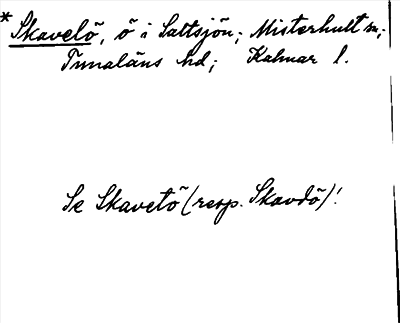 *Skavelö, ö i Saltsjön; Misterhult sn;
Tunaläns hd; Kalmar l.
Se Skavetö (resp. Skavdö)!